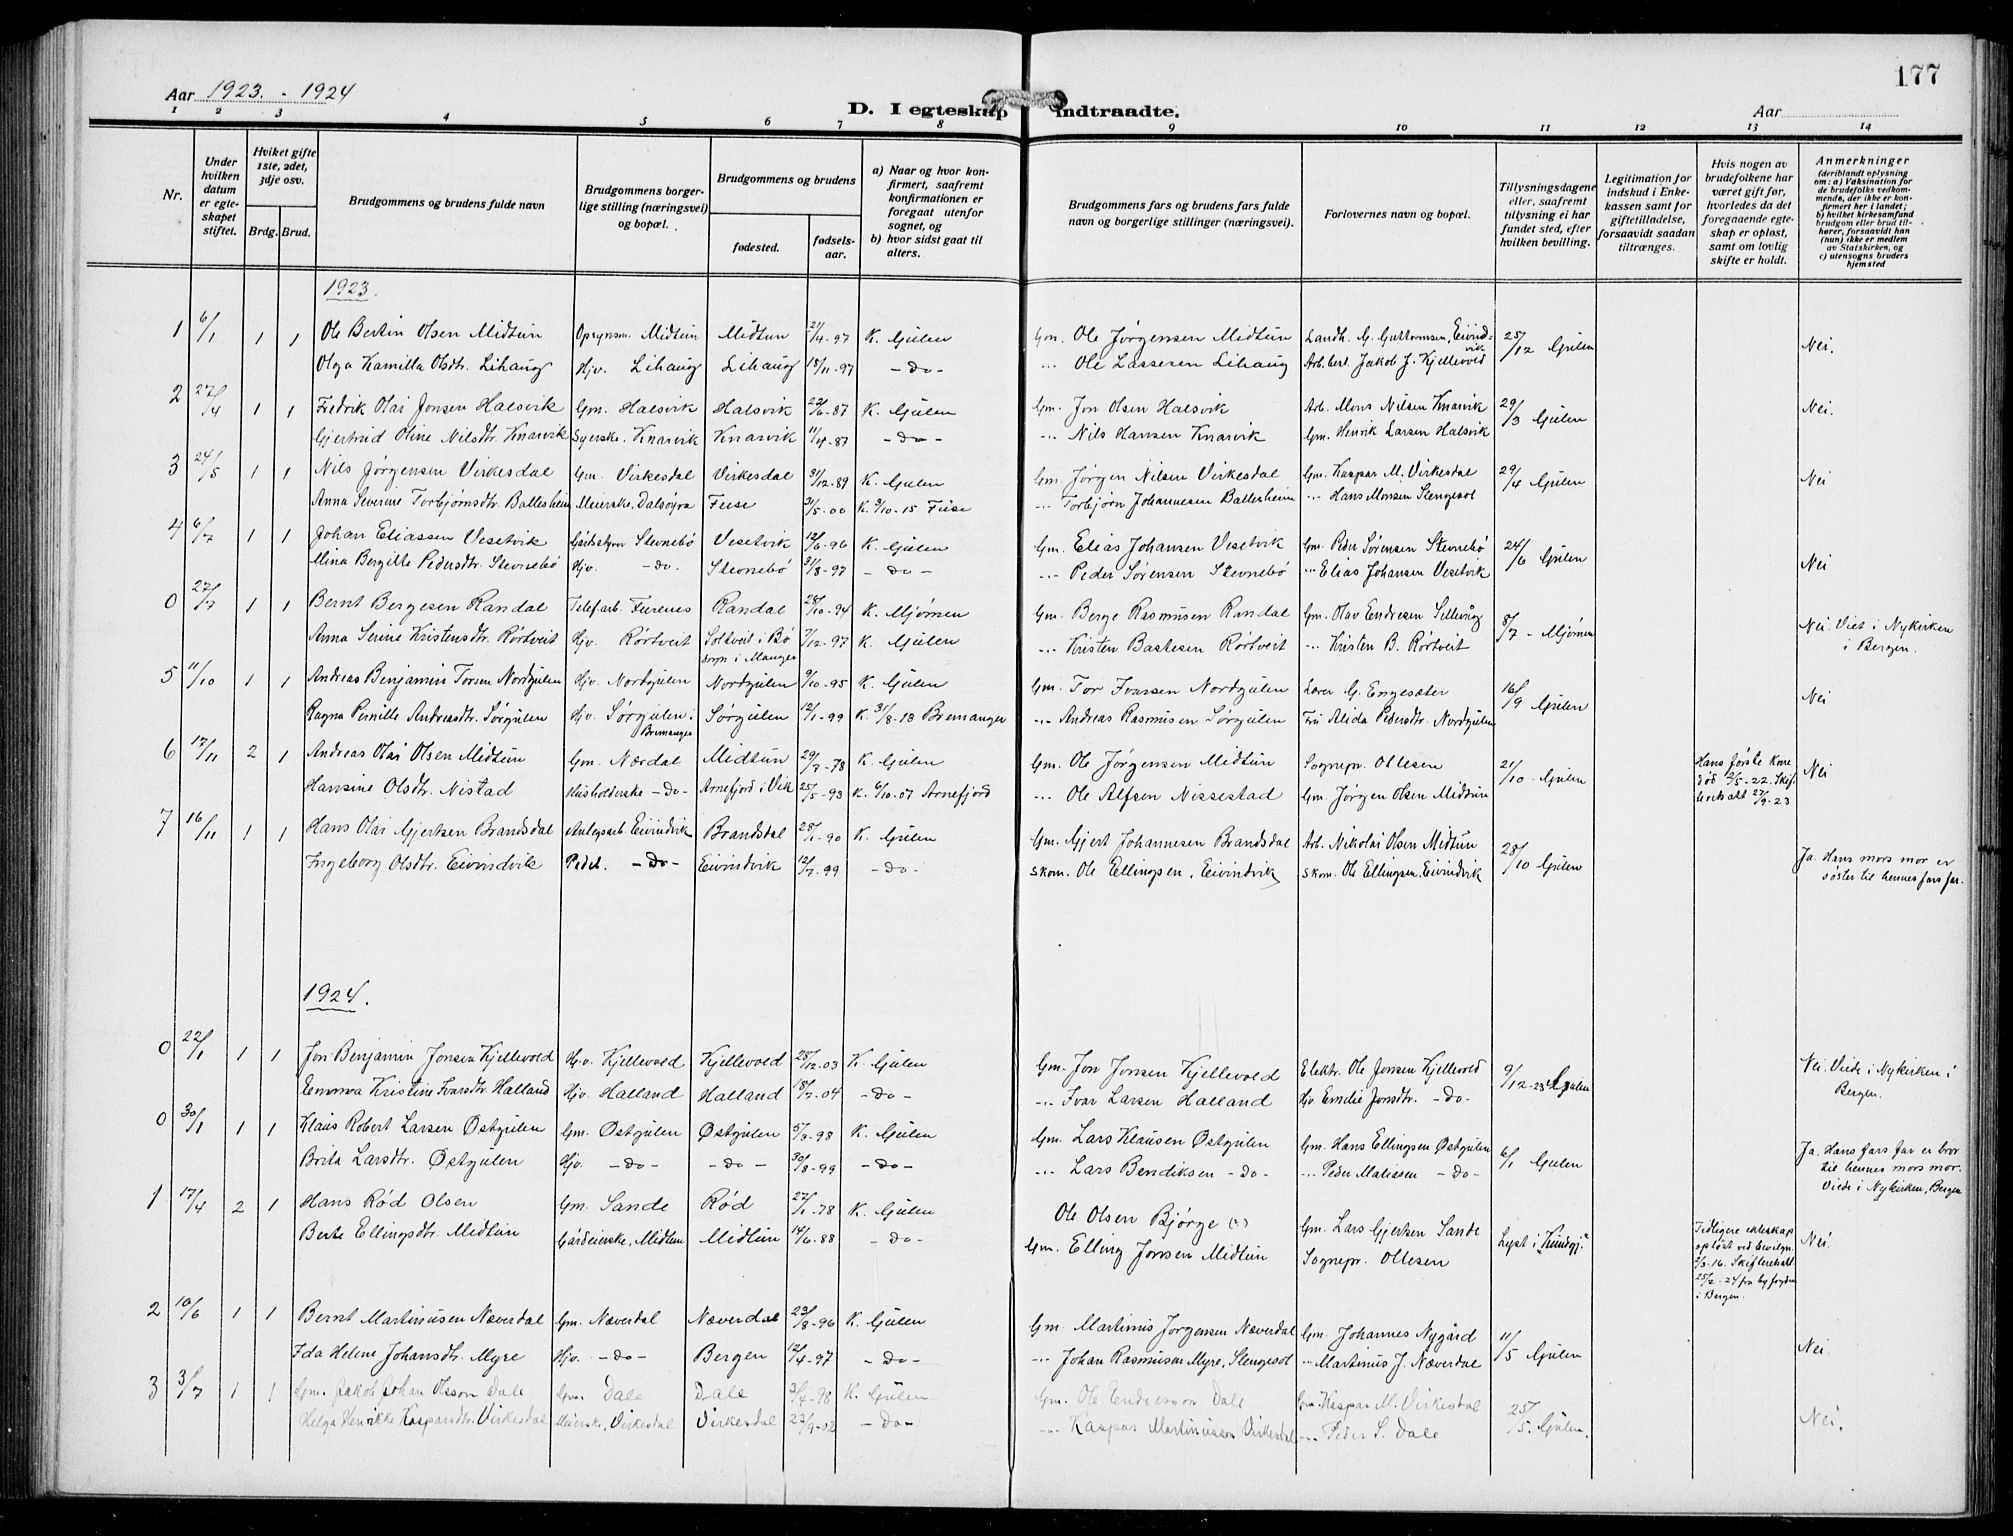 177
Aar 1923. - 1924
D. I egteskap indtraadte.
Aar
1 2 3 4 5 6 7 8 9 10 11 12 13 14
Nr.
Under hvilken datum er egteskapet stiftet.
Hviket gifte 1ste, 2det, 3dje osv.
Brdg. Brud.
Brudgommens og brudens fulde navn
Brudgommens borgerlige stilling (næringsvei) og bopæl.
Brudgommens og brudens
fødested.
fødselsaar.
a) Naar og hvor konfirmert, saafremt konfirmationen er foregaat utenfor sognet, og
b) hvor sidst gaat til alters.
Brudgommens fars og brudens fars fulde navn og borgerlige stillinger (næringsvei).
Forlovernes navn og bopæl.
Tillysningsdagene eller, saafremt tillysning ei har fundet sted, efter hvilken bevilling.
Legitimation for indskud i Enkekassen samt for giftetilladelse, forsaavidt saadan tiltrænges.
Hvis nogen av brudefolkene har været gift før, hvorledes da det foregaaende egteskap er opløst, samt om lovlig skifte er holdt.
Anmerkninger (deriblandt oplysning om: a) Vaksination for de brudefolks vedkommende, der ikke er konfirmert her i landet; b) hvilket kirkesamfund brudgom eller brud tilhører, forsaavidt han (hun) ikke er medlem av Statskirken, og c) utensogns bruders hjemsted
1923.
1 6/1 1 1 Ole Bertin Olsen Midtun Opsynsm. Midtun Midtun 21/4-97 K. Gulen Gm. Ole Jørgensen Midtun Landh. G. Guttormsen, Eivindvik 25/12 Gulen Nei.
Olga Kamilla Olsdtr. Lihaug Hjv. Lihaug Lihaug 18/11-97 -do- ... Ole Lassesen Lihaug Arb.best. Jakob J. Kjellevold
2 27/4 1 1 Fredrik Olai Jonsen Halsvik Gm. Halsvik Halsvik 22/6-87 K. Gulen Gm. Jon Olsen Halsvik Arb. Mons Nilsen Knarvik 29/3 Gulen Nei.
Gjertrud Oline Nilsdtr. Knarvik Syerske. Knarvik Knarvik 11/4-87 -do- ... Nils Hansen Knarvik Gm. Henrik Larsen Halsvik
3 24/5 1 1 Nils Jørgensen Virkesdal Gm. Virkesdal Virkesdal 31/12-89 K. Gulen Gm. Jørgen Nilsen Virkesdal Gm. Kaspar M. Virkesdal 29/4 Gulen Nei
Anna Severine Torbjørnsdtr. Ballesheim Meierske, Dalsøyra Fuse 31/5-00 K. 3/10-15 Fuse ... Torbjørn Johannesen Ballesheim ... Hans Monsen Stengesol
4 6/7 1 1 Johan Eliassen Vesetvik Gårdstyrer Stevnebø Vesetvik 12/6-96 K. Gulen Gm. Elias Johansen Vesetvik Gm. Peder Sørensen Stevnebø 24/6 Gulen Nei
Mina Bergitte Pedersdtr. Stevnebø Hjv. -do- Stevnebø 31/8-97 -do- ... Peder Sørensen Stevnebø ... Elias Johansen Vesetvik
0 27/7 1 1 Bernt Bergesen Randal Telef.arb. Furenes Randal 28/10-94 K. Mjømen Gm. Berge Rasmusen Randal Gm. Olav Endresen Sellevåg 8/7 - Mjømen Nei. Viet i Nykirken i Bergen.
Anna Serine Kristensdtr. Rørtveit Hjv. Rørtveit Soltveit i Bø sogn i Manger 7/12-97 K. Gulen ... Kristen Bastesen Rørtveit ... Kristen B. Rørtveit
5 11/10 1 1 Andreas Benjamin Torsen Nordgulen Hjv. Nordgulen Nordgulen 9/10-95 K. Gulen Gm. Tor Ivassen Nordgulen Lærer G. Engesæter 16/9 Gulen Nei
Ragna Pernille Andreasdtr. Sørgulen Hjv. Sørgulen i Bremanger Sørgulen 12/1-99 K. 31/8-13 Bremanger ... Andreas Rasmusen Sørgulen Frk Alida Pedersdtr. Nordgulen
6 17/11 2 1 Andreas Olai Olsen Midtun Gm. Nærdal Midtun 29/7-78 K. Gulen Gm. Ole Jørgensen Midtun Sognepr. Ottesen 21/10 - Gulen Hans første kone død 2/5-22. Skifteretsatt 27/9-23 Nei
Hansine Olsdtr. Nistad Husholderske -do- Arnefjord i Vik 25/5-93 K. 6/10-07 Arnefjord ... Ole Alfsen Nissestad Gm. Jørgen Olsen Midtun
7 16/11 1 1 Hans Olai Gjertsen Brandsdal Anlegsarb. Eivindvik Brandsdal 28/1-90 K. Gulen Gm. Gjert Johannesen Brandsdal Arb. Nikolai Olsen Midtun 28/10 Gulen Ja. Hans mors mor er søster til hennes fars far.
Ingeborg Olsdtr. Eivindvik Pedel. -do- Eivindvik 12/7-99 -do- Skom. Ole Ellingsen, Eivindvik Skom. Ole Ellingsen, Eivindvik
1924.
0 22/1 1 1 Jon Benjamin Jonsen Kjellevold Hjv. Kjellevold Kjellevold 28/12-03 K. Gulen Gm. Jon Jonsen Kjellevold Elektr. Ole Jonsen Kjellevold 9/12-23 Gulen Nei. Viede i Nykirken i Bergen.
Emma Kristine Ivarsdtr. Halland Hjv. Halland Halland 18/7-04 -do- ... Ivar Larsen Halland Hjv. Emilie Jonsdtr. -do-
0 30/1 1 1 Klaus Robert Larsen Østgulen Gm. Østgulen Østgulen 5/3-98 K. Gulen Gm. Lars Klausen Østgulen Gm. Hans Ellingsen Østgulen 6/1 Gulen Ja. Hans fars far er bror til hennes mors mor. Viede i Nykirken, Bergen
Brita Larsdtr. Østgulen Hjv. -do- -do- 30/8-99 -do- ... Lars Bendiksen -do- ... Peder Matissen -do-
1 17/4 2 1 Hans Rød Olsen Gm. Sande Rød 27/1-78 K. Gulen Ole Olsen Bjørge (?) Gm. Lars Gjertsen Sande Lyst i "Kundgj." Tidligere ekteskap opløst ved bevilgn. 2/3-16. Skifteretsatt 25/2-24 fra byfogden i Bergen. Nei.
Berte Ellingsdtr. Midtun Gårdeierske, Midtun Midtun 14/6-88 -do- Gm. Elling Jonsen Midtun Sognepr. Ottesen
2 10/6 1 1 Bernt Martinusen Næverdal Gm. Næverdal Næverdal 23/8-96 K. Gulen Gm. Martinus Jørgensen Næverdal Gm. Johannes Nygård 11/5 Gulen Nei.
Ida Helene Johansdtr. Myre Hjv. -do- Bergen 12/4-97 -do- ... Johan Rasmusen Myre, Stengesol ... Martinus J. Næverdal
3 3/7 1 1 Gm. Jakob Johan Olsson Dale Gm. Dale Dale 3/4-98 K. Gulen Gm. Ole Endresson Dale Gm. Kaspar M. Virkesdal 25/5. Gulen. Nei.
Helga Henrikke Kasparsdtr. Virkesdal Meierske, Virkesdal Virkesdal 23/9-02 -do- ... Kaspar Martinusson Virkesdal ... Peder S. Dale